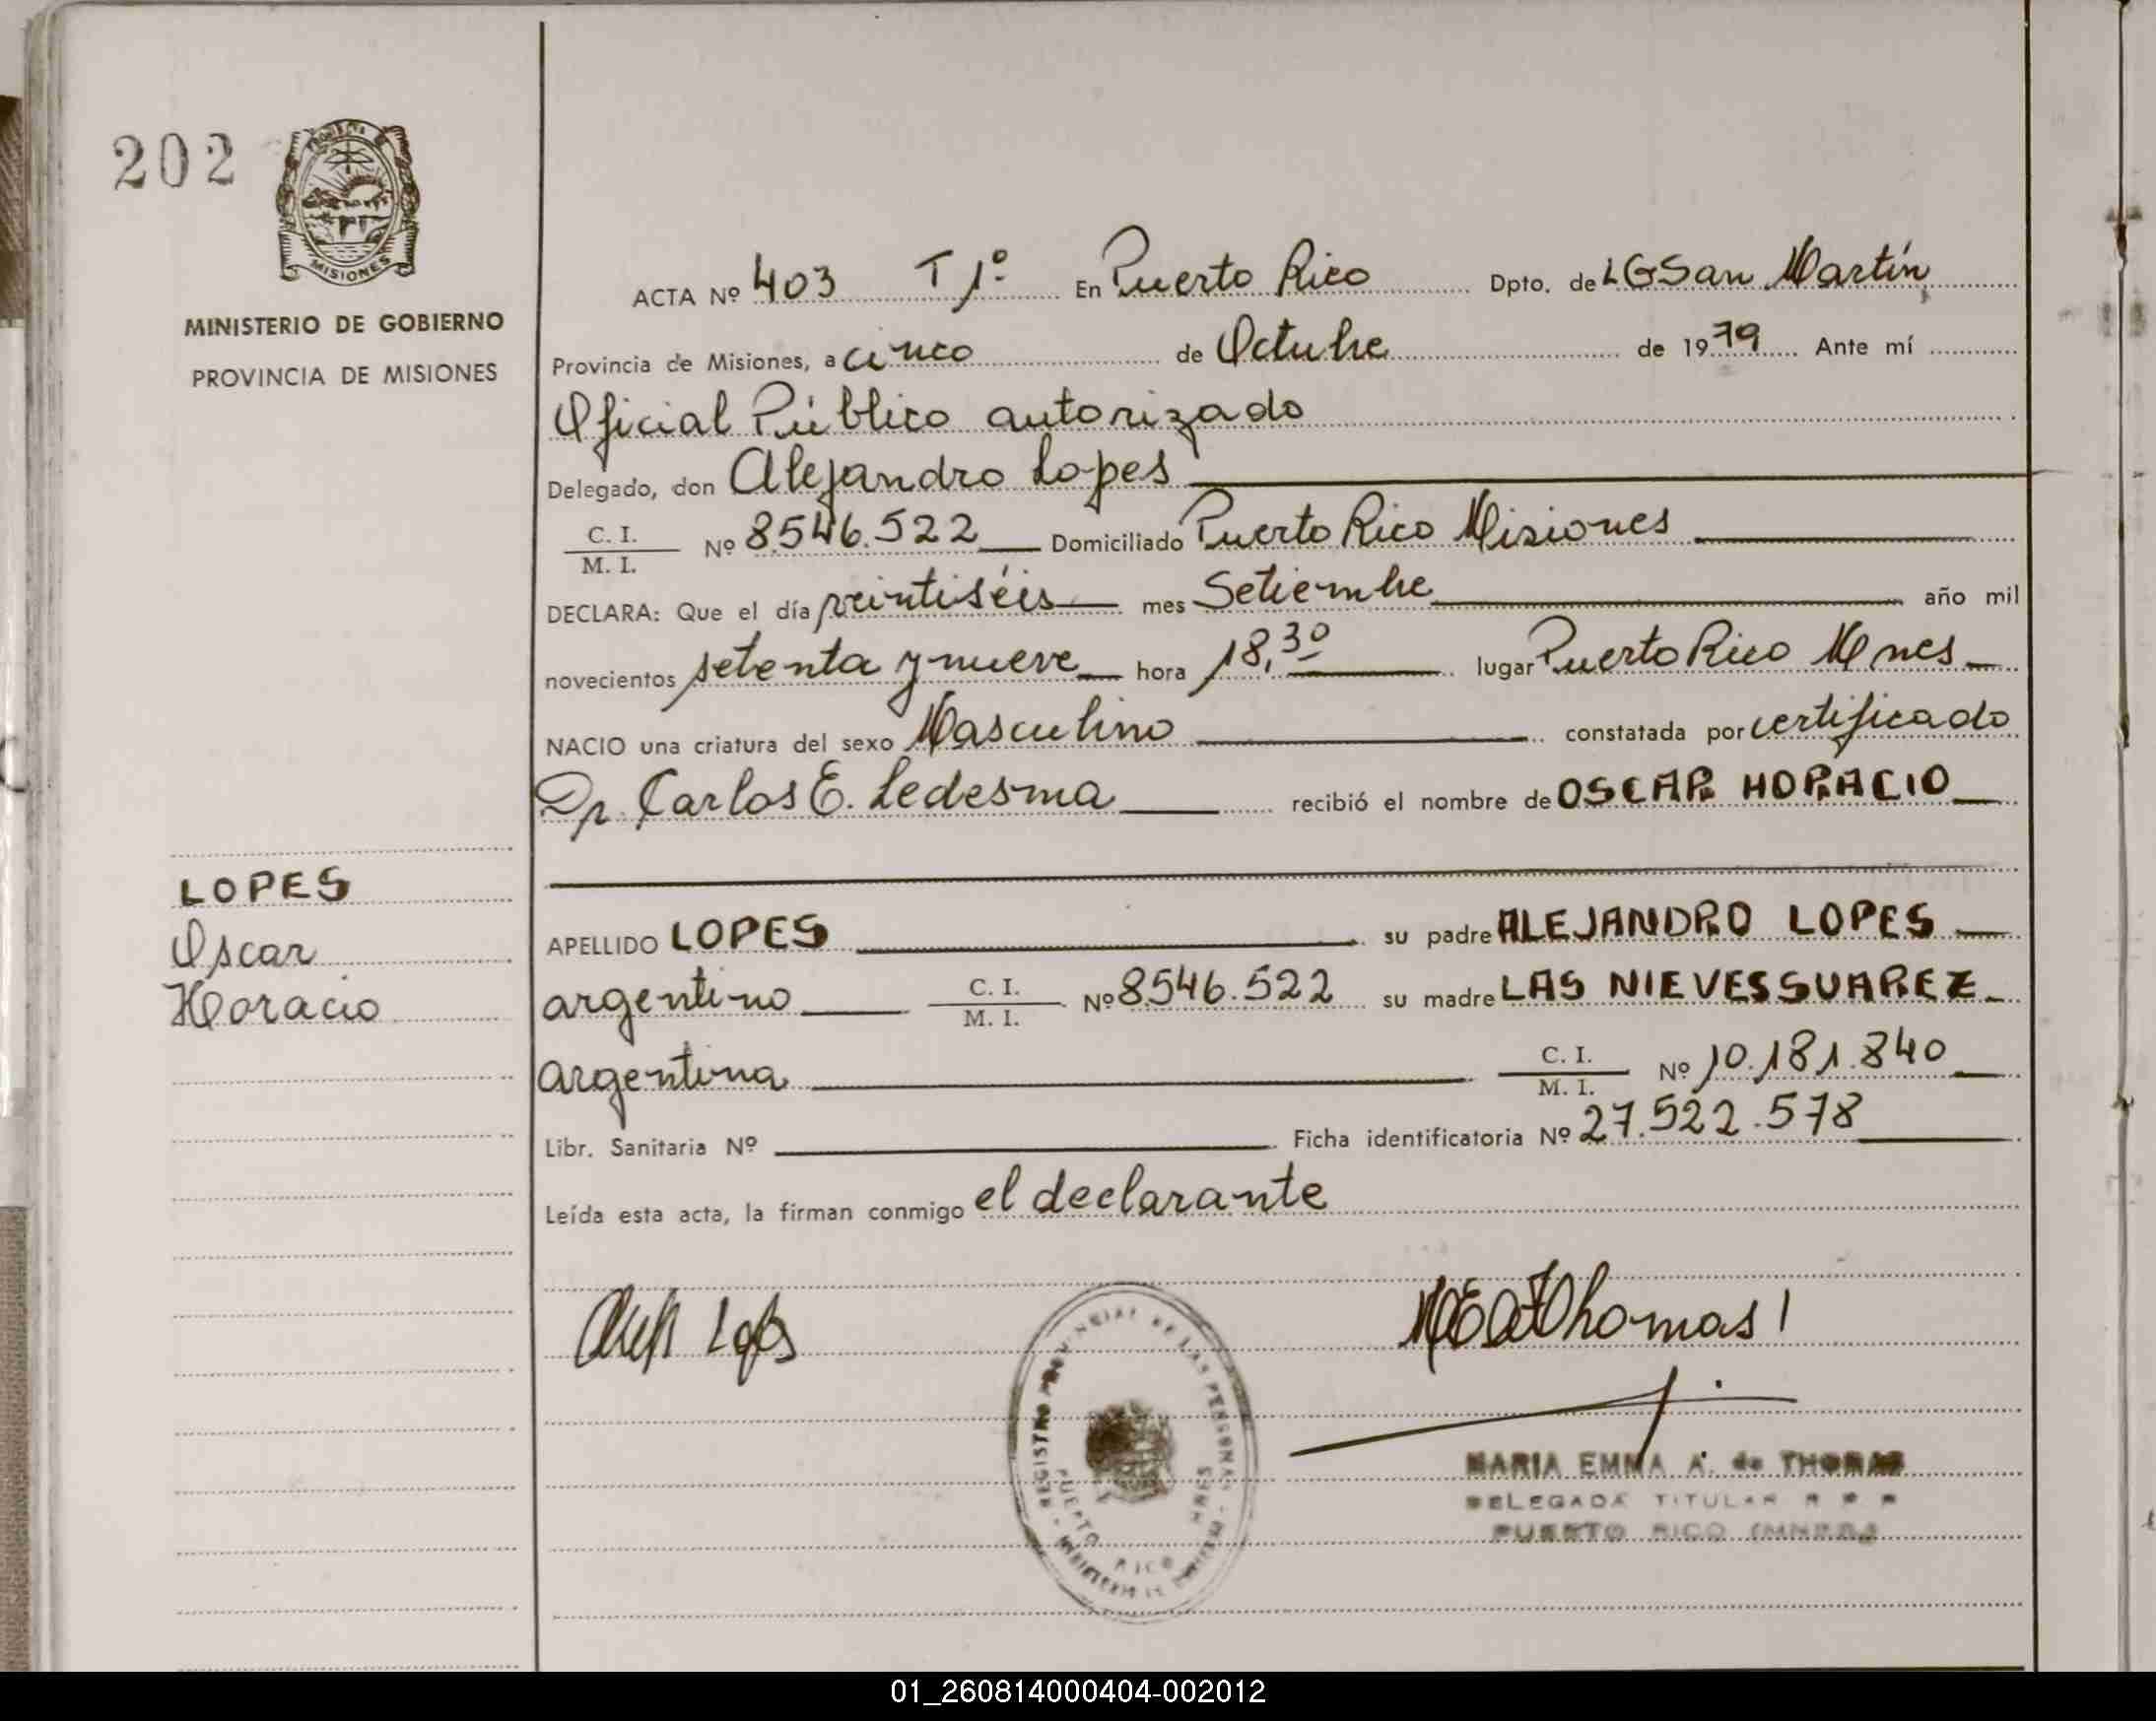 202
MISIONES
MINISTERIO DE GOBIERNO
PROVINCIA DE MISIONES
LOPES
Oscar
Horacio
ACTA Nº 403 T 1º En Puerto Rico Dpto. de LGSan Martín,
Provincia de Misiones, a cinco de Octubre de 1979 Ante mí
Oficial Público autorizado
Delegado, don Alejandro Lopes
C. I.
M. I. Nº 8.546.522 Domiciliado Puerto Rico Misiones
DECLARA: Que el día veintiséis mes Setiembre año mil
novecientos setenta y nueve hora 18,30 lugar Puerto Rico Mnes
NACIO una criatura del sexo Masculino constatada por certificado
Dr. Carlos E. Ledesma recibió el nombre de OSCAR HORACIO
APELLIDO LOPES su padre ALEJANDRO LOPES
argentino C. I. M. I. Nº 8.546.522 su madre LAS NIEVES SUAREZ
argentina C. I. M. I. Nº 10.181.840
Libr. Sanitaria Nº Ficha identificatoria Nº 27.522.578
Leída esta acta, la firman conmigo el declarante
REGISTRO PROVINCIAL DE LAS PERSONAS
PUERTO RICO MNES
MARIA EMMA A. de THOMAS
DELEGADA TITULAR R P P
PUERTO RICO (MNES.)
01_260814000404-002012